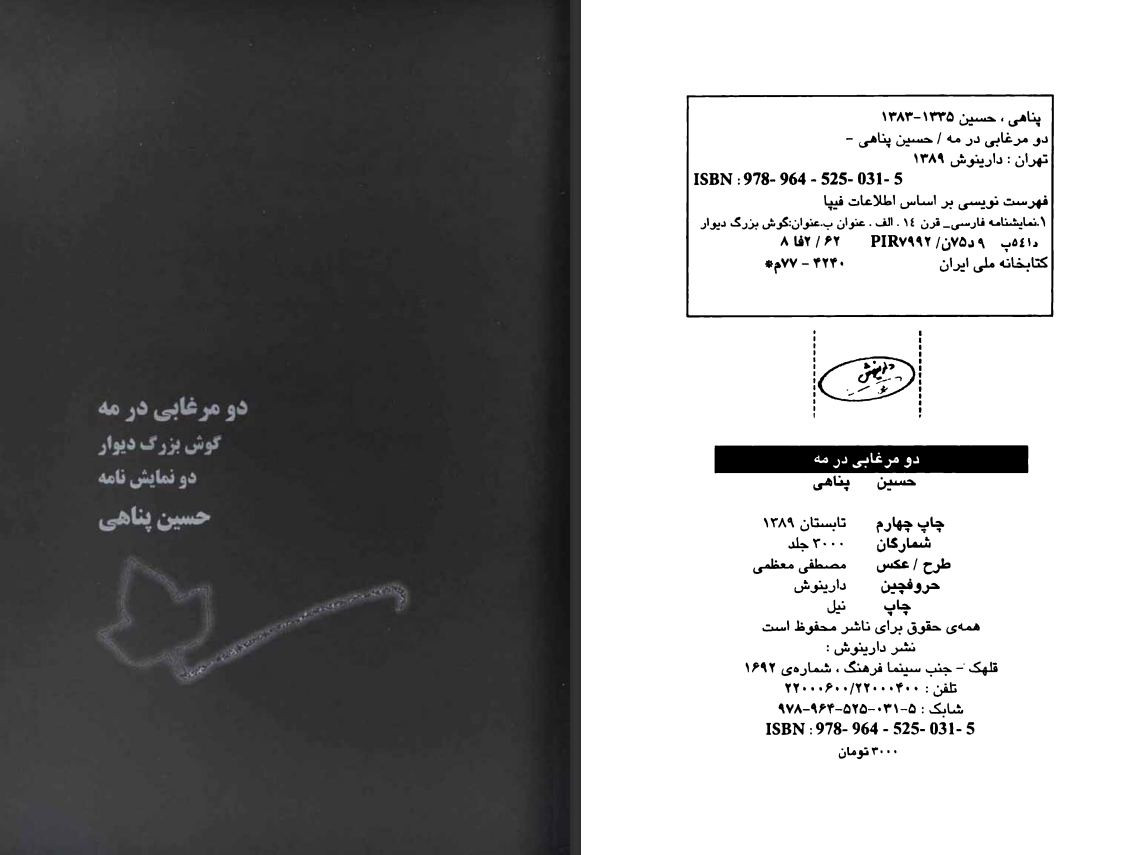 دو مرغابی در مه
گوش بزرگ دیوار
دو نمایش نامه
حسین پناهی
پناهی ، حسین ۱۳۳۵-۱۳۸۳
دو مرغابی در مه / حسین پناهی -
تهران : دارینوش ۱۳۸۹
ISBN : 978- 964 - 525- 031- 5
فهرست نویسی بر اساس اطلاعات فیپا
۱.نمایشنامه فارسی_ قرن ۱٤ . الف . عنوان ب.عنوان:گوش بزرگ دیوار
د۵٤۱پ ۹ د۷۵ن/ PIR۷۹۹۲ ۶۲ / ۲فا ۸
کتابخانه ملی ایران ۴۲۴۰ - ۷۷م*
دارینوش
دو مرغابی در مه
حسین پناهی
چاپ چهارم تابستان ۱۳۸۹
شمارگان ۳۰۰۰ جلد
طرح / عکس مصطفی معظمی
حروفچین دارینوش
چاپ نیل
همه‌ی حقوق برای ناشر محفوظ است
نشر دارینوش :
قلهک - جنب سینما فرهنگ ، شماره‌ی ۱۶۹۲
تلفن : ۲۲۰۰۰۶۰۰/۲۲۰۰۰۴۰۰
شابک : ۵-۰۳۱-۵۲۵-۹۶۴-۹۷۸
ISBN : 978- 964 - 525- 031- 5
۳۰۰۰ تومان